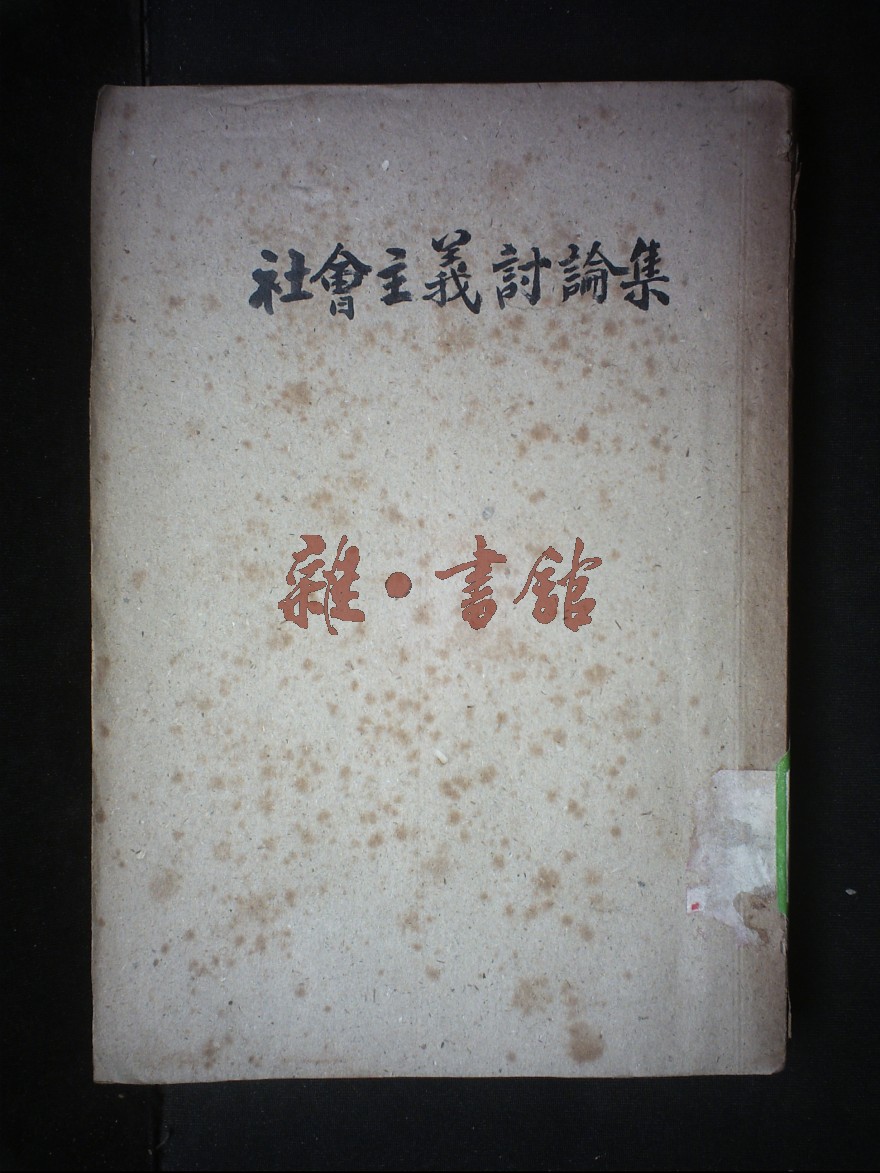 社會主義討論集
雜·書館